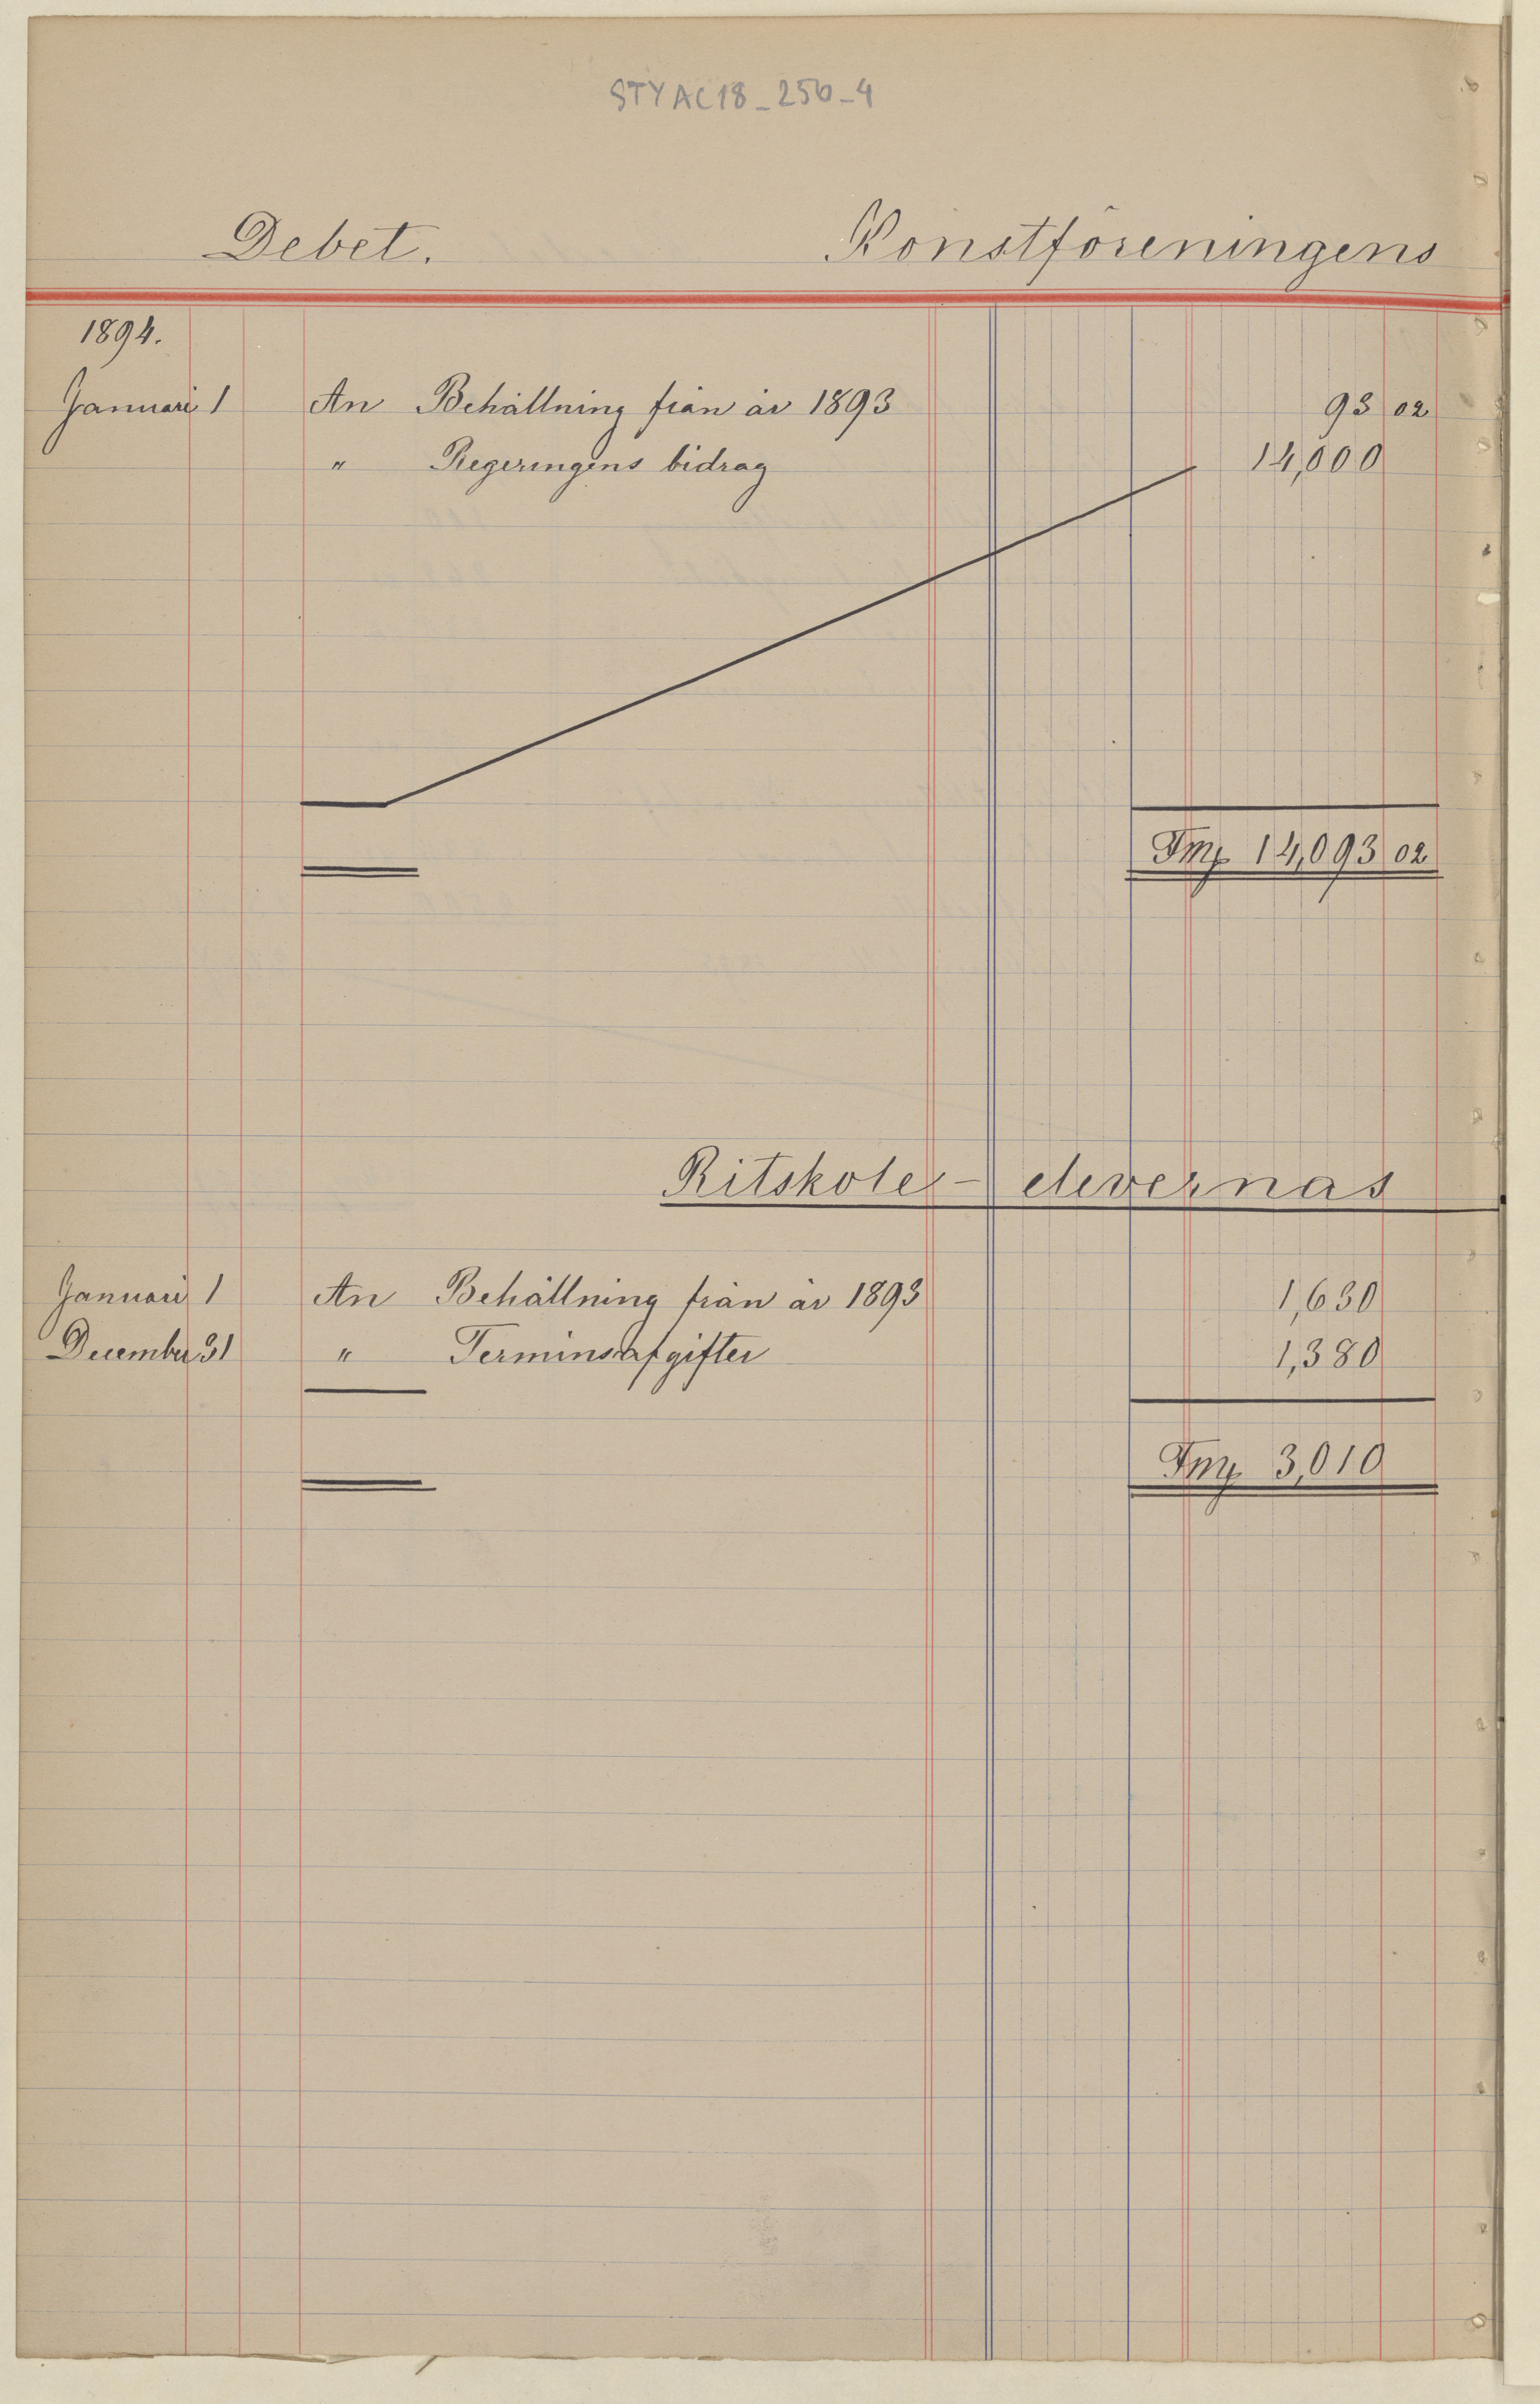 STYAC18_250_4
Debet. Konstföreningens
1894.
Januari 1 An Behållning från år 1893 93 02
" Regeringens bidrag 14,000
Fmk 14,093 02
Ritskole-elevernas
Januari 1 An Behållning från år 1893 1,630
December 31 " Terminsafgifter 1,380
Fmk 3,010